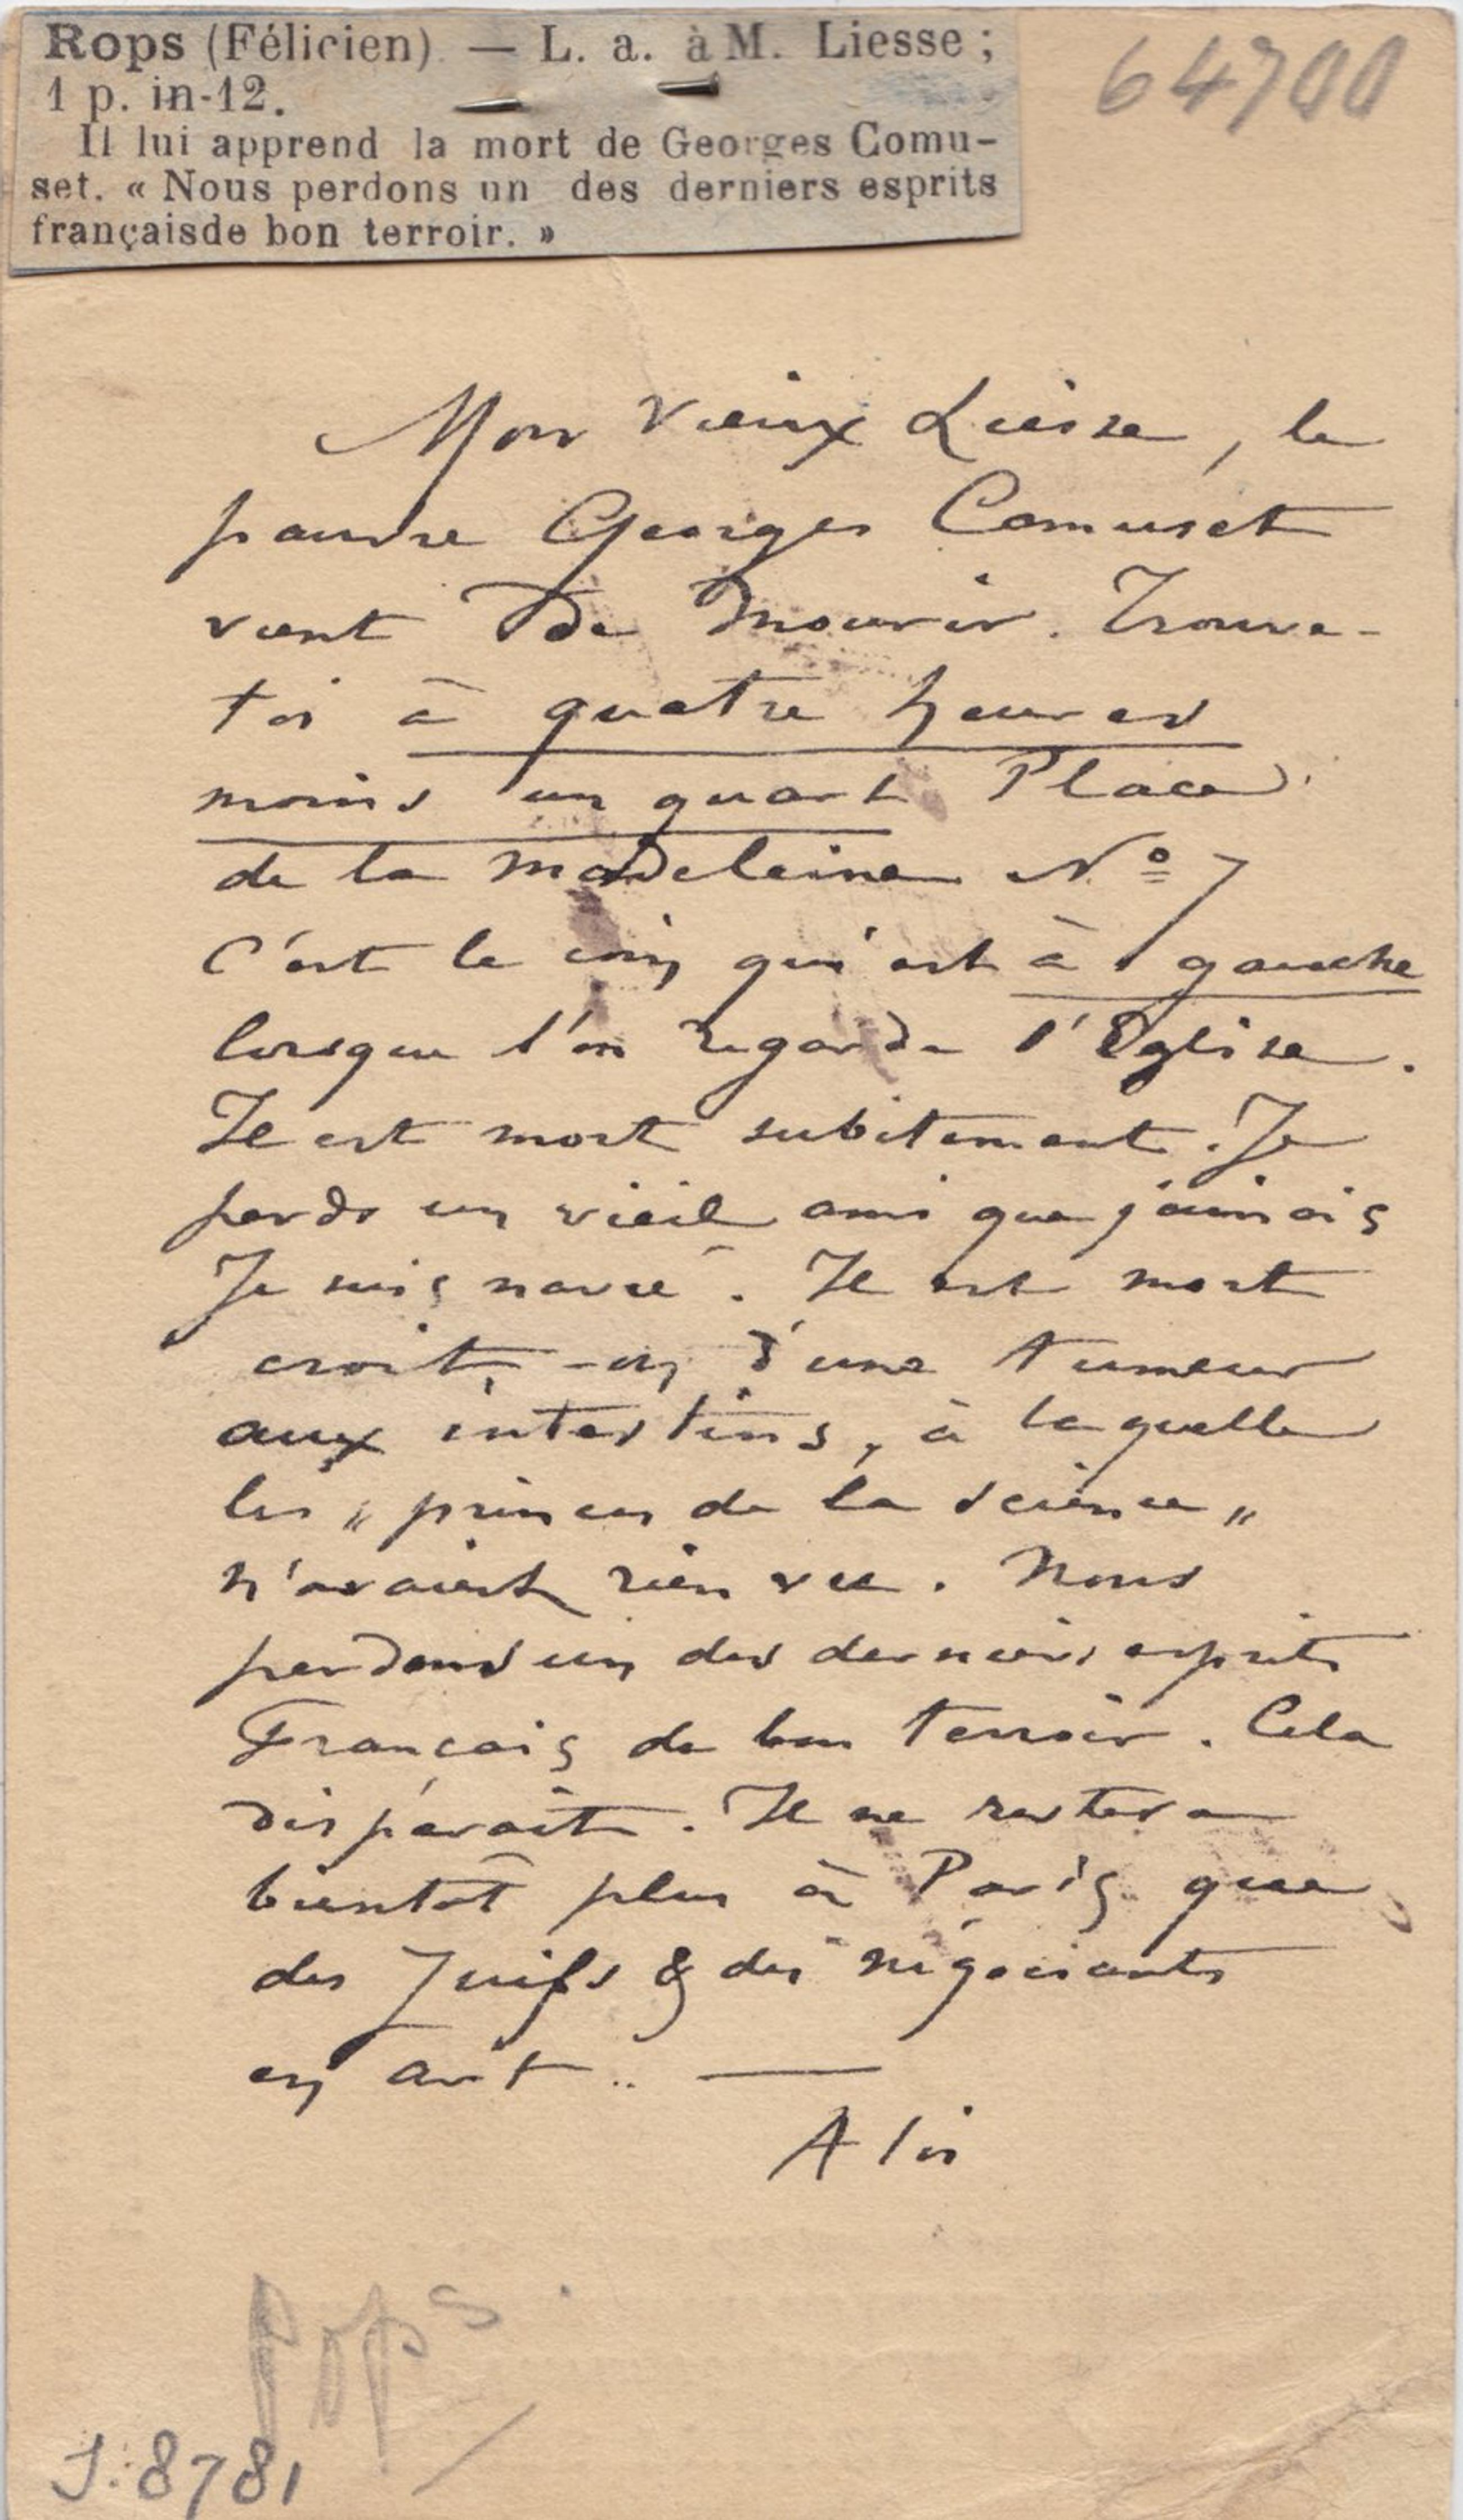 Rops (Félicien) — L. a. à M. Liesse ;
1 p. in-12.
Il lui apprend la mort de Georges Comu-
set. « Nous perdons un des derniers esprits
françaisde bon terroir. »
64700
Mon vieux Liesse, le
pauvre Georges Camuset
vient de mourir. Trouve-
toi à quatre heures
moins un quart Place
de la Madeleine Nº 7
C'est le coin qui est à gauche
lorsque l'on regarde l'Eglise.
Il est mort subitement. Je
perds un vieil ami que j'aimais
Je suis navré. Il est mort
croit-on d'une tumeur
aux intestins, à laquelle
les „princes de la science„
n'avaient rien vu. Nous
perdons un des derniers esprits
Français de bon terroir. Cela
disparaît. Il ne restera
bientôt plus à Paris que
des Juifs & des négociants
en art.. —
A toi
Rops
J. 8781